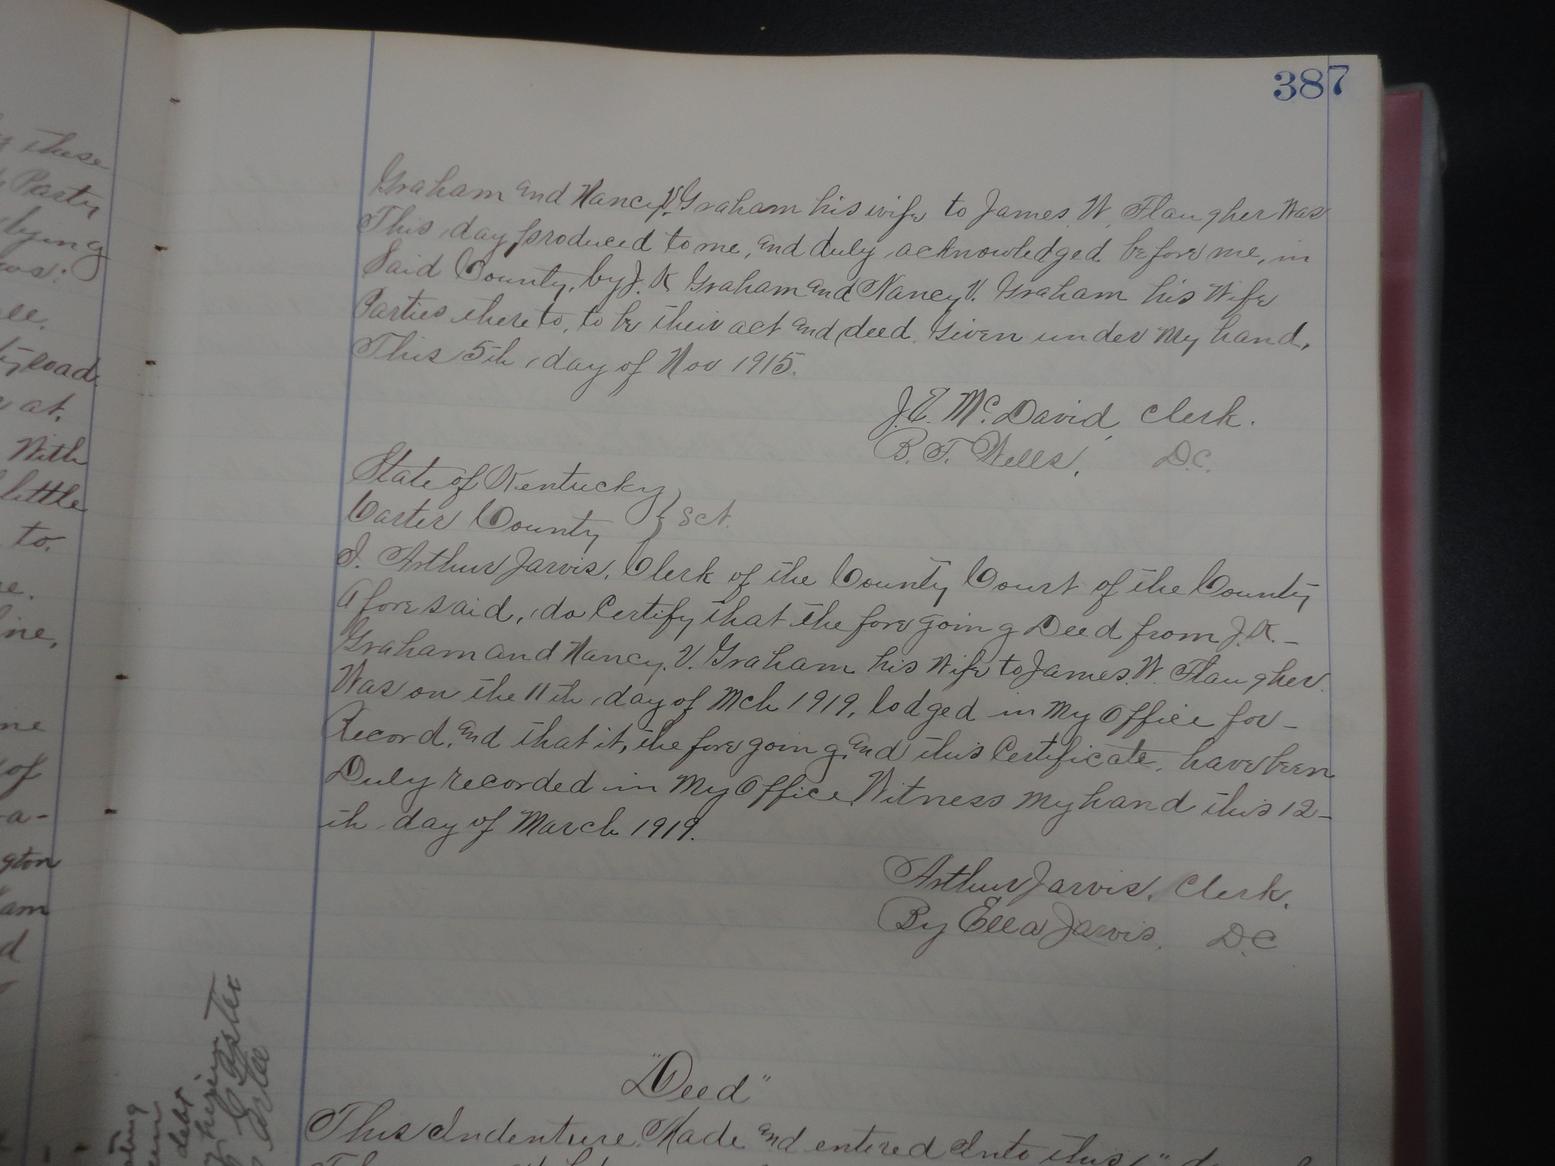 387
these
Party
lying
Road
at.
With
little
to.
line,
of
a-
gton
am
d
Graham and Nancy V. Graham his wife to James W. Flaugher Was
This day produced to me, and duly acknowledged before me, in
Said County, by J. K. Graham and Nancy V. Graham his Wife
Parties thereto, to be their act and deed. Given under My hand,
This 5th day of Nov 1915.
J. E. McDavid, Clerk.
B. F. Wells, D.C.
State of Kentucky }
Carter County } Sct.
I, Arthur Jarvis, Clerk of the County Court of the County
Aforesaid, do Certify that the foregoing Deed from J. K. -
Graham and Nancy. V. Graham his Wife to James. W. Flaugher.
Was on the 11th day of Mch 1919, lodged in My Office for -
Record, and that it, the foregoing, and this Certificate, have been
Duly recorded in My Office Witness my hand this 12-
th day of March 1919.
Arthur Jarvis, Clerk.
By Ella Jarvis, D.C
"Deed"
This Indenture Made and entered Into this
debt.
herein